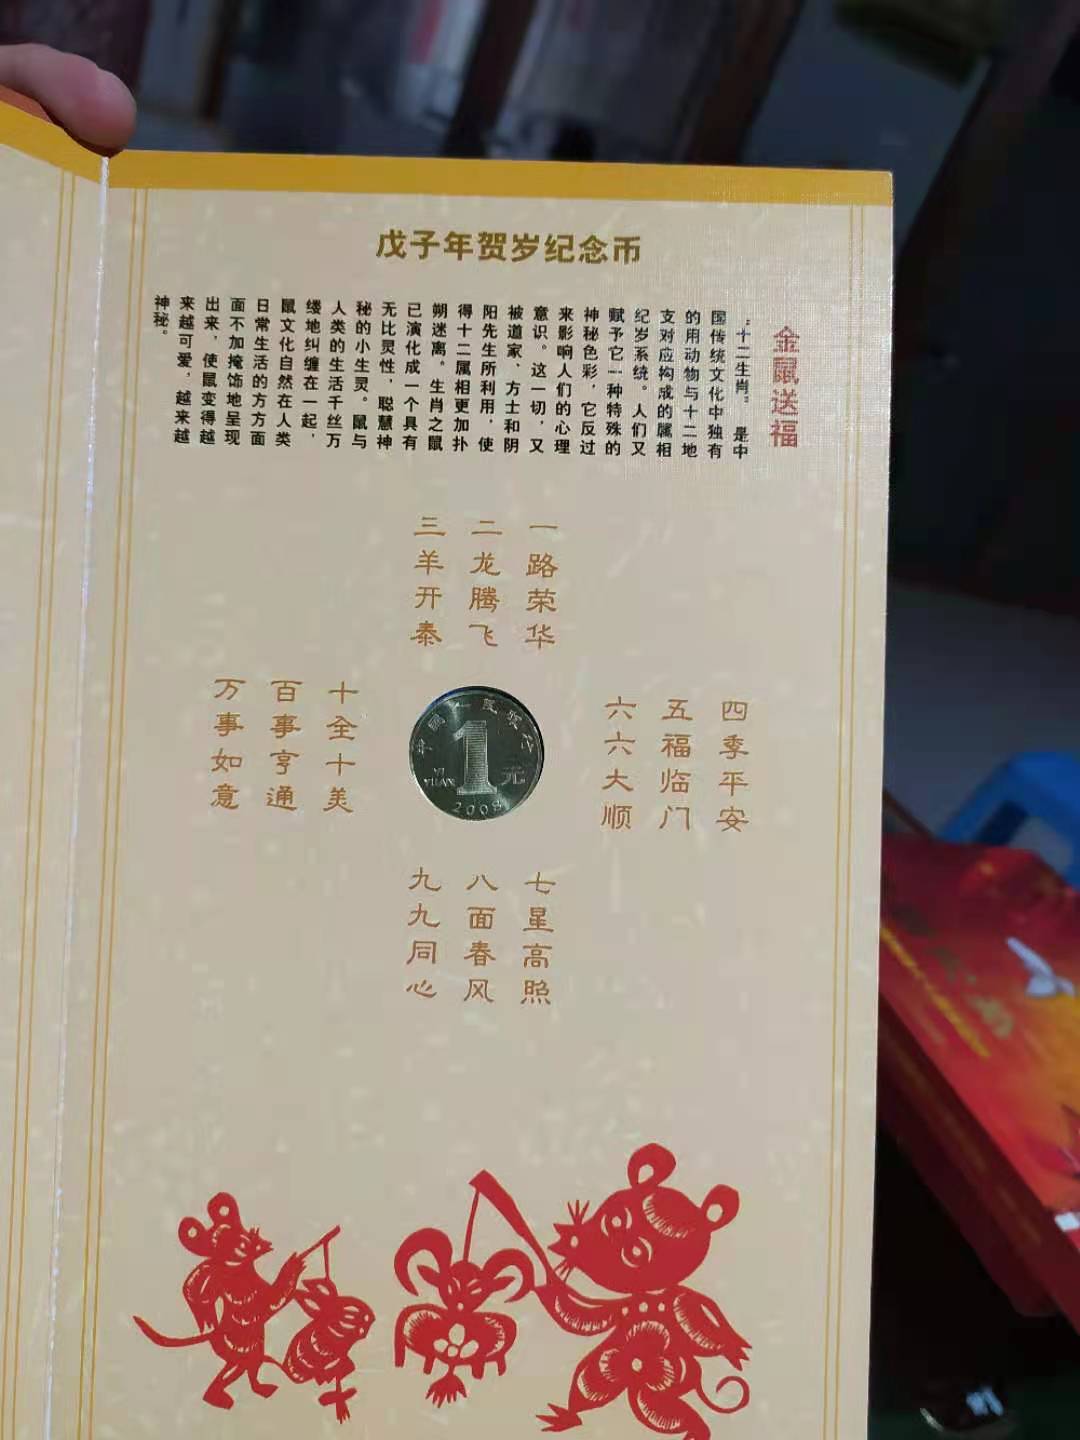 戊子年贺岁纪念币
金鼠送福
“十二生肖” 是中
国传统文化中独有
的用动物与十二地
支对应构成的属相
纪岁系统。人们又
赋予它一种特殊的
神秘色彩，它反过
来影响人们的心理
意识。这一切，又
被道家、方士和阴
阳先生所利用，使
得十二属相更加扑
朔迷离。生肖之鼠
已演化成一个具有
无比灵性，聪慧神
秘的小生灵。鼠与
人类的生活千丝万
缕地纠缠在一起，
鼠文化自然在人类
日常生活的方方面
面不加掩饰地呈现
出来，使鼠变得越
来越可爱，越来越
神秘。
一路荣华
二龙腾飞
三羊开泰
四季平安
五福临门
六六大顺
七星高照
八面春风
九九同心
十全十美
百事亨通
万事如意
中国人民银行
1元
YI
YUAN
2008